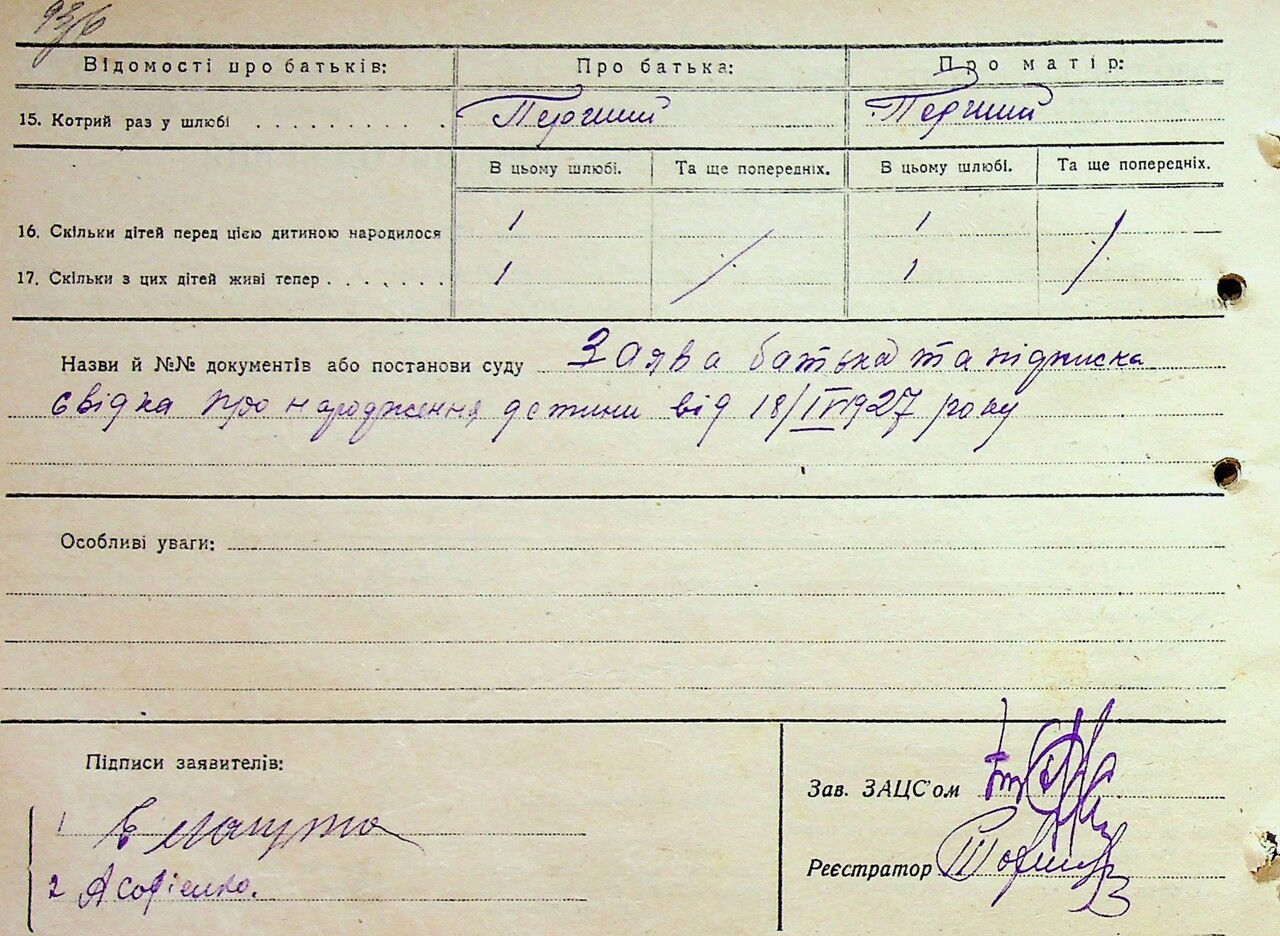 93/6
Відомості про батьків: Про батька: Про матір:
15. Котрий раз у шлюбі . . . . . . . . . . Перший Перший
В цьому шлюбі. Та ще попередніх. В цьому шлюбі. Та ще попередніх.
16. Скільки дітей перед цією дитиною народилося 1 1
17. Скільки з цих дітей живі тепер . . . . . . . 1 1
Назви й №№ документів або постанови суду Заява батька та підписка
свідка про народження дитини від 18/IV 1927 року
Особливі уваги:
Підписи заявителів:
Зав. ЗАЦС'ом
1
Реєстратор
2 А Софієнко.